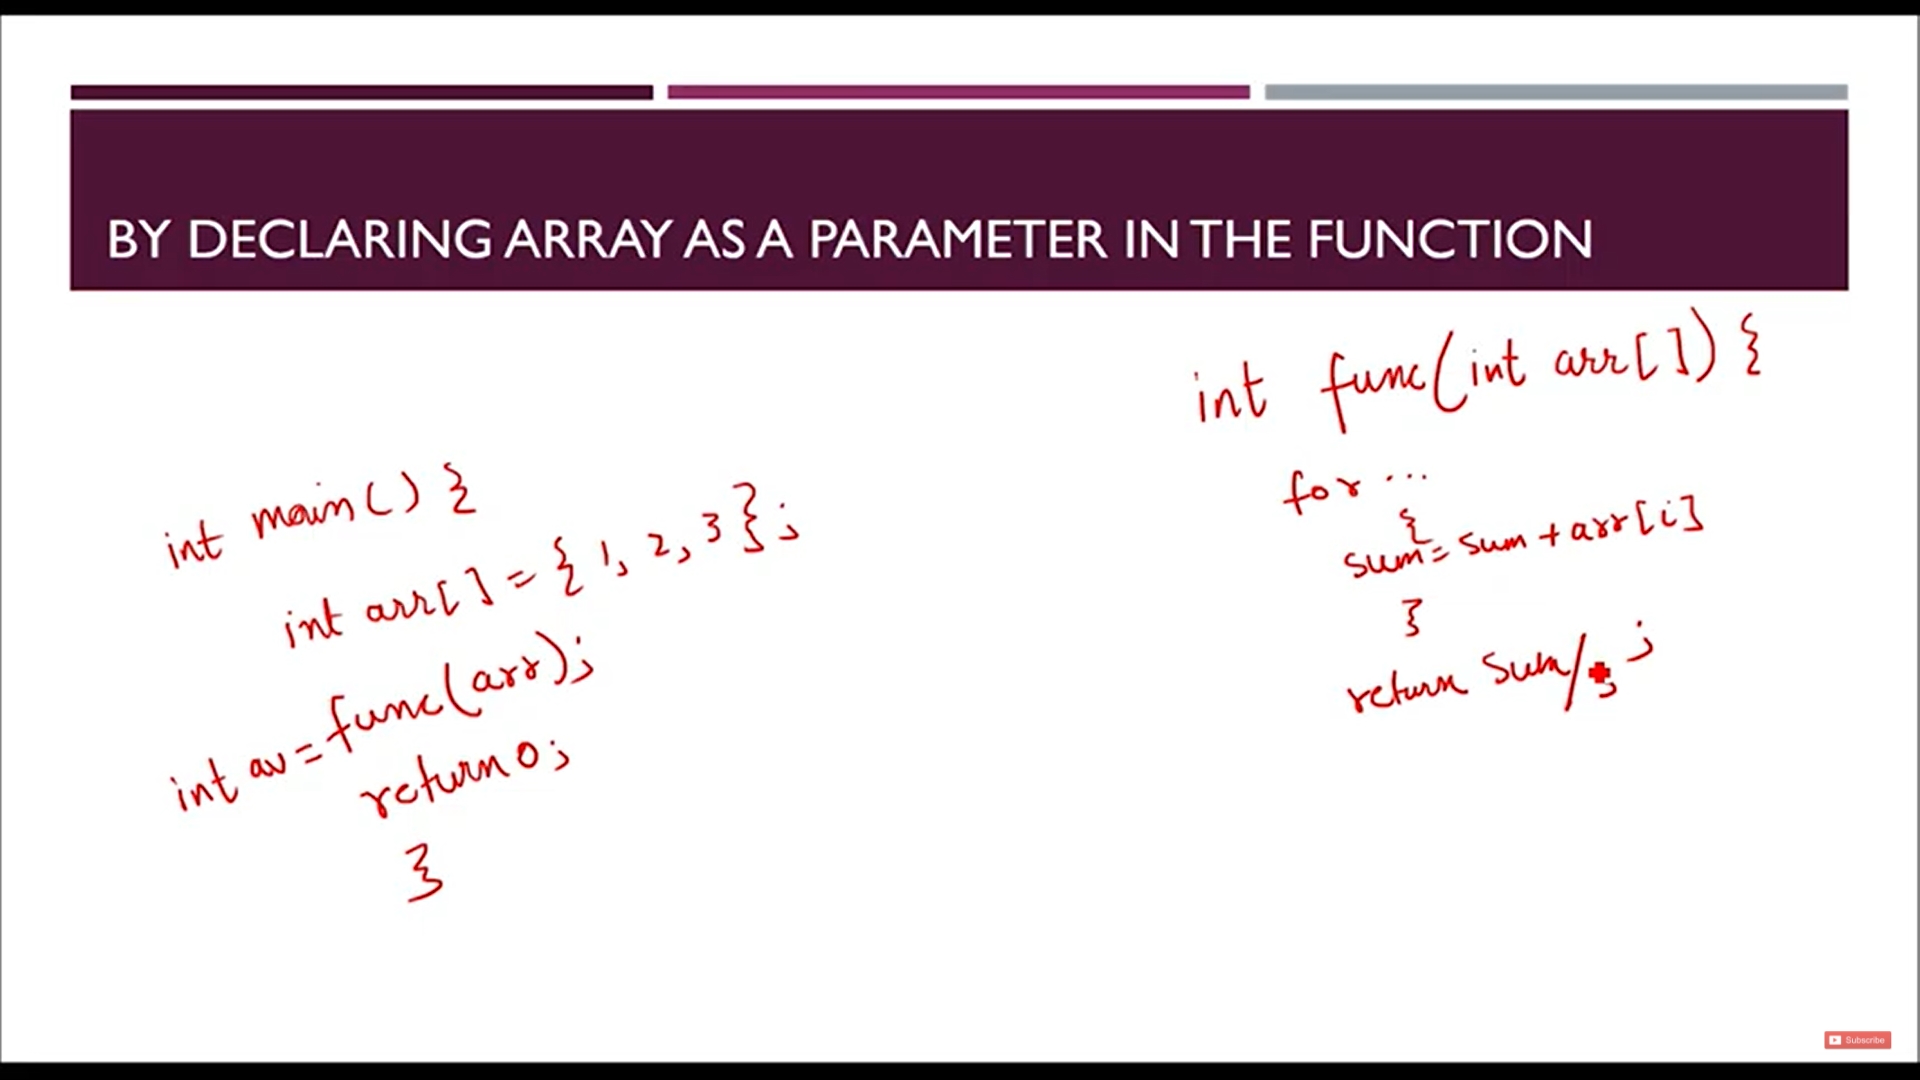 BY DECLARING ARRAY AS A PARAMETER IN THE FUNCTION
int main() {
int arr[] = {1, 2, 3};
int av = func(arr);
return 0;
}
int func(int arr[]) {
for ...
{
sum = sum + arr[i]
}
return sum/ ;
Subscribe